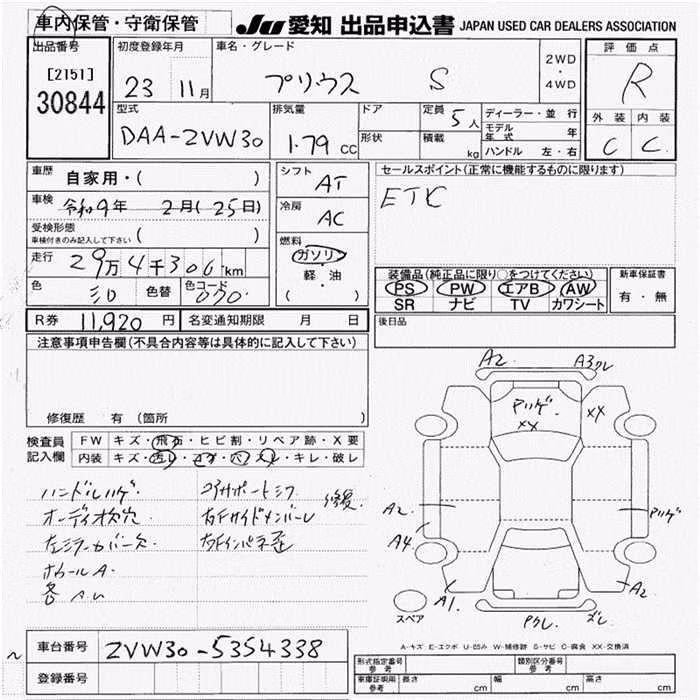 車内保管・守衛保管
JU 愛知 出品申込書 JAPAN USED CAR DEALERS ASSOCIATION
出品番号
[2151]
30844
初度登録年月
23 11月
車名・グレード
プリウス S
2WD
・
4WD
評価点
R
外装 内装
C C
型式
DAA-ZVW30
排気量
1.79 CC
ドア
形状
定員 5人
積載 kg
ディーラー・並行
モデル年式 年
ハンドル 左・右
車歴
自家用・( )
車検
令和9年 2月(25日)
受検形態
車検付きのみ記入して下さい ( )
走行
29万4千306km
色
色替
色コード
070
シフト
AT
冷房
AC
燃料
ガソリン
軽・油
( )
セールスポイント(正常に機能するものに限ります)
ETC
装備品(純正品に限り○をつけてください)
PS PW エアB AW
SR ナビ TV カワシート
新車保証書
有・無
後日品
R券 11,920 円
名変通知期限 月 日
注意事項申告欄(不具合内容等は具体的に記入して下さい)
修復歴 有(箇所
検査員記入欄
FW キズ・飛石・ヒビ割・リペア跡・X要
内装 キズ・汚レ・コゲ・穴・スレ・キレ・破レ
ハンドルハゲ.
オーディオ枠穴.
左ミラーカバー欠
ホイールA.
コアサポートミワ
右Fサイドメンバーレ
右Fインパネ歪
修復.
A2.
A3クレ
アリゲ
XX
XX
A2
A4
アリゲ
A1.
A2
Pクレ
ズレ
スペア
A-キズ E-エクボ U-凹み W-補修跡 S-サビ C-腐食 XX-交換済
車台番号 ZVW30-5354338
登録番号
型式指定番号 参考
類別区分番号 参考
車庫証明用 参考
長さ cm
幅 cm
高さ cm